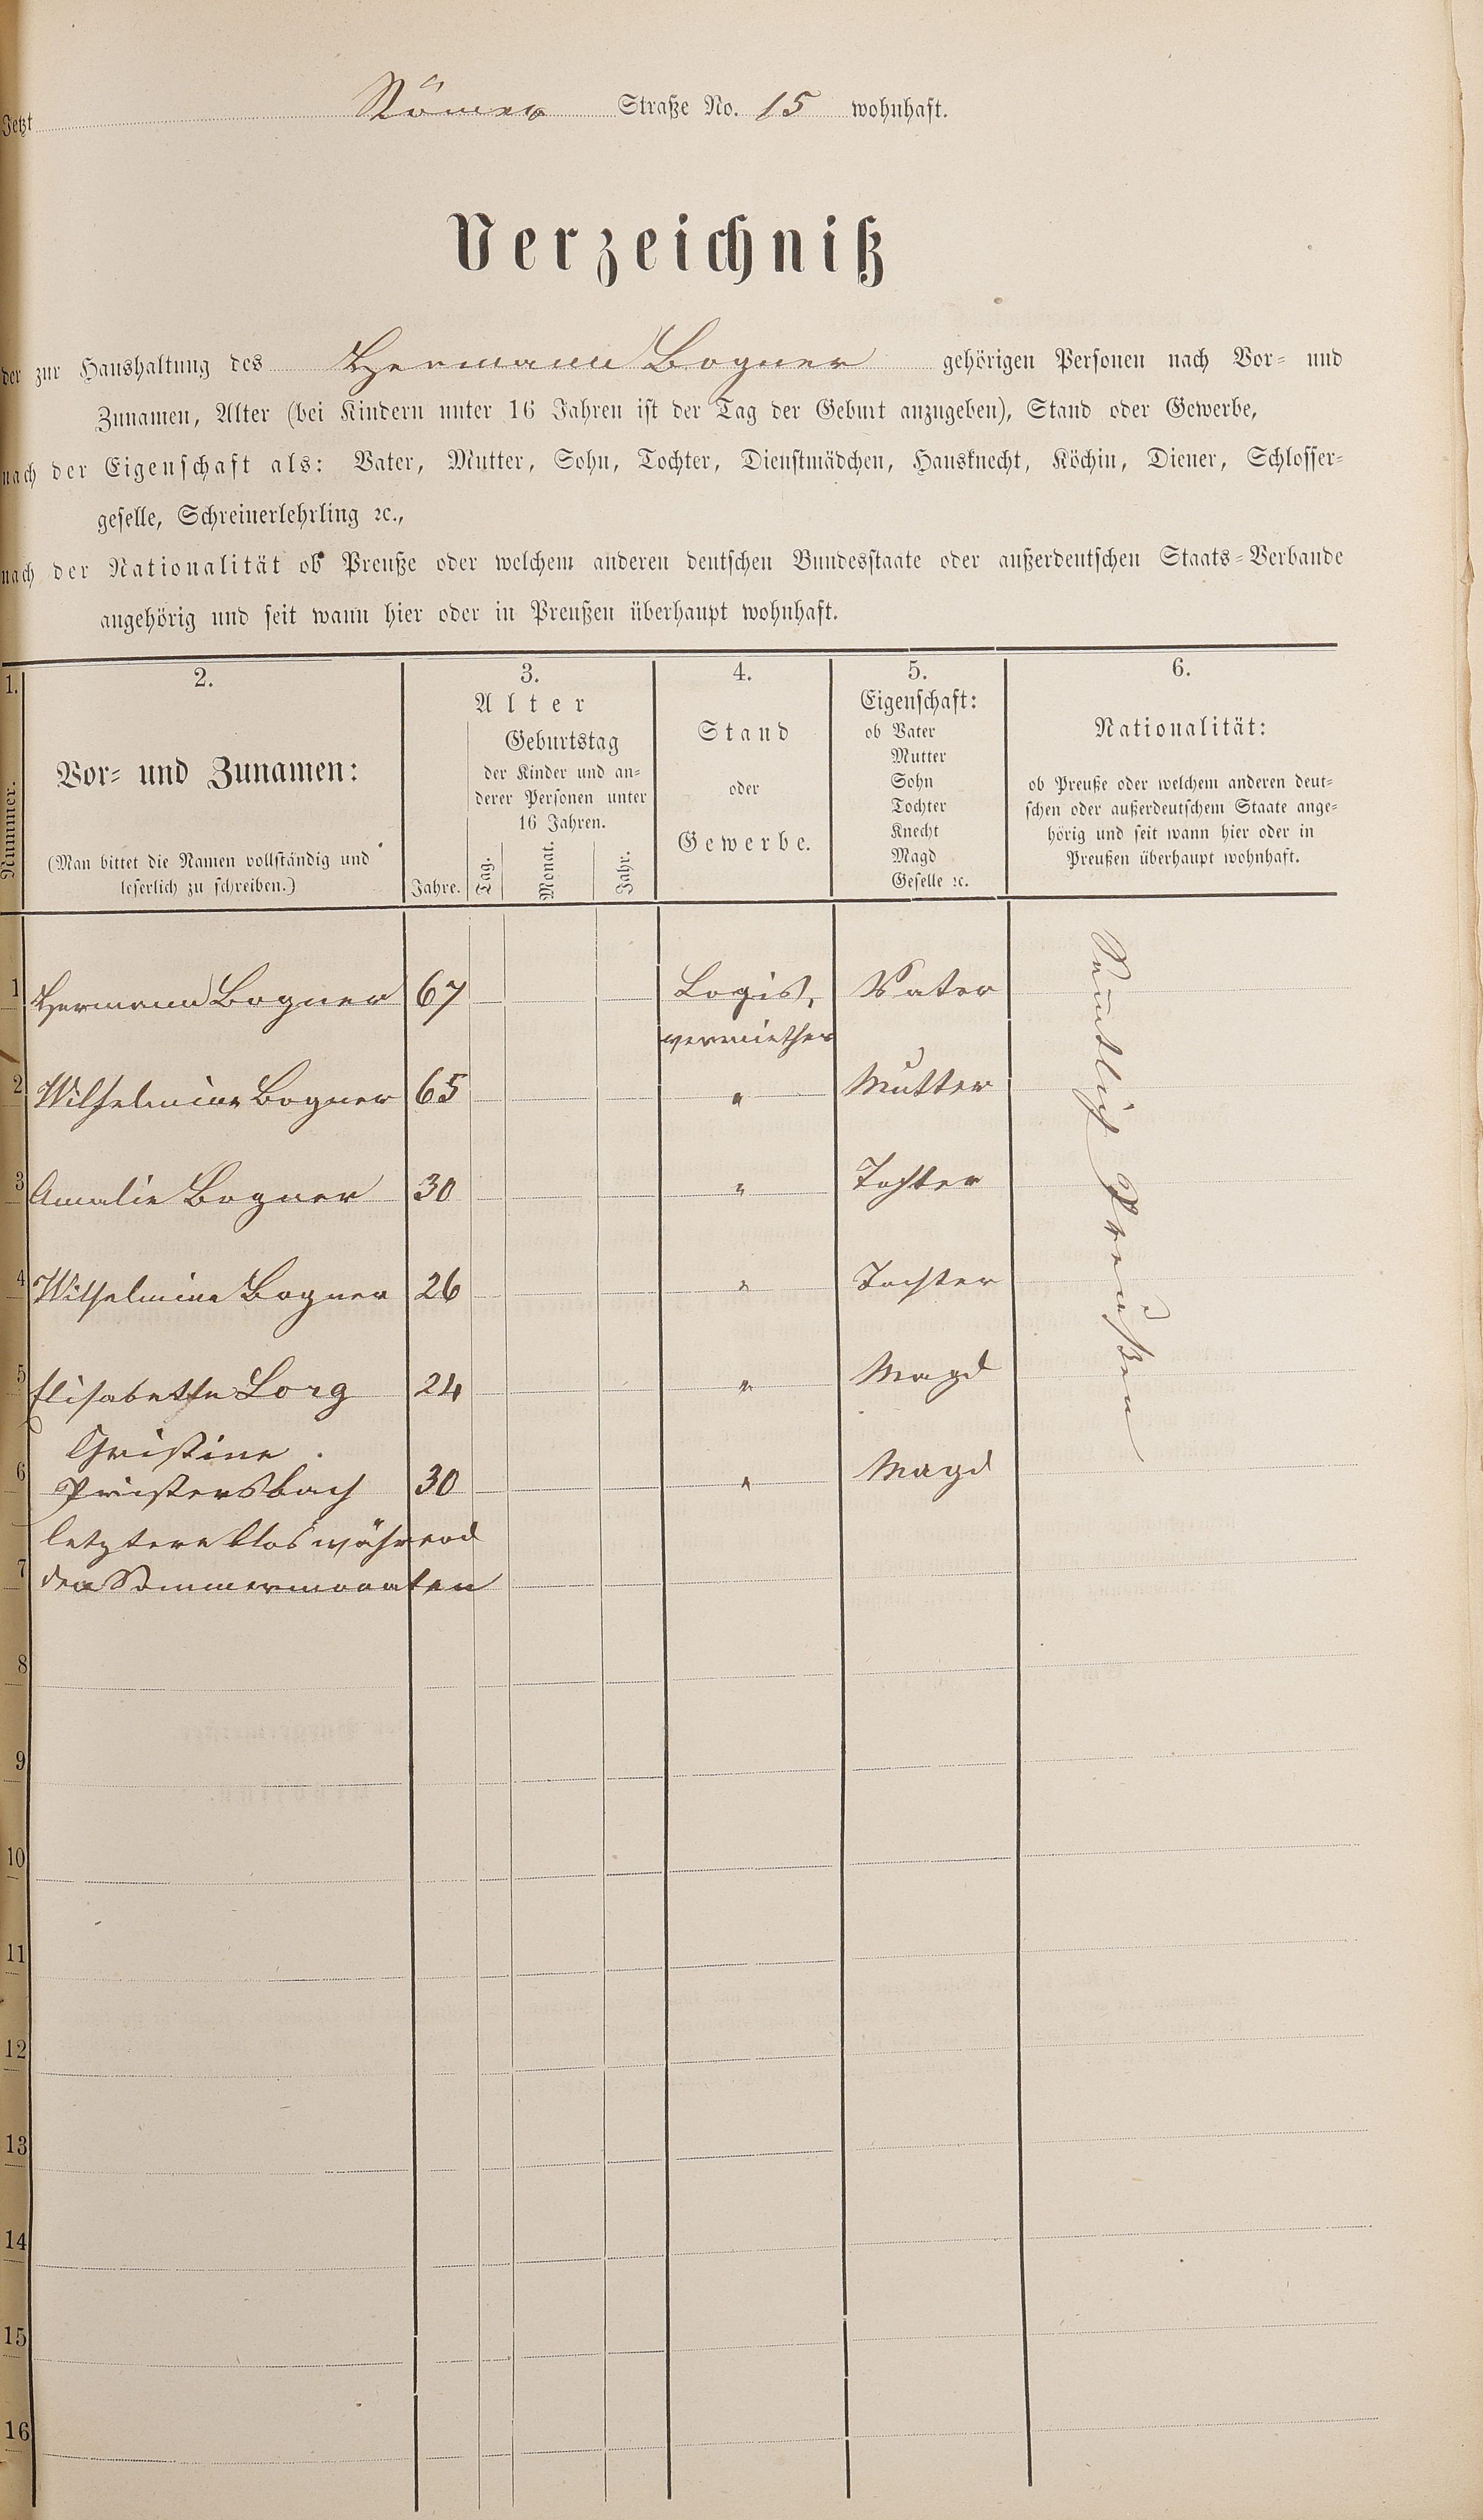 Jetzt Römer Straße No. 15 wohnhaft.
Verzeichniß
der zur Haushaltung des Hermann Bogner gehörigen Personen nach Vor- und
Zunamen, Alter (bei Kindern unter 16 Jahren ist der Tag der Geburt anzugeben), Stand oder Gewerbe,
nach der Eigenschaft als: Vater, Mutter, Sohn, Tochter, Dienstmädchen, Hausknecht, Köchin, Diener, Schlosser-
geselle, Schreinerlehrling ꝛc.,
nach der Nationalität ob Preuße oder welchem anderen deutschen Bundesstaate oder außerdeutschen Staats-Verbande
angehörig und seit wann hier oder in Preußen überhaupt wohnhaft.
1.
Nummer.
2.
Vor- und Zunamen:
(Man bittet die Namen vollständig und
leserlich zu schreiben.)
3.
Alter
Jahre.
Geburtstag
der Kinder und an-
derer Personen unter
16 Jahren.
Tag.
Monat.
Jahr.
4.
Stand
oder
Gewerbe.
5.
Eigenschaft:
ob Vater
Mutter
Sohn
Tochter
Knecht
Magd
Geselle ꝛc.
6.
Nationalität:
ob Preuße oder welchem anderen deut-
schen oder außerdeutschem Staate ange-
hörig und seit wann hier oder in
Preußen überhaupt wohnhaft.
1 Hermann Bogner 67 Logis, Vater
vermiether
2 Wilhelmine Bogner 65 " Mutter
3 Amalie Bogner 30 " Tochter
4 Wilhelmine Bogner 26 " Tochter
5 Elisabetha Lorg 24 " Magd
Christine
6 Pristersbach 30 " Magd
letztere blos während
7 den Sommermonaten
Sämtlich Preußen
8
9
10
11
12
13
14
15
16